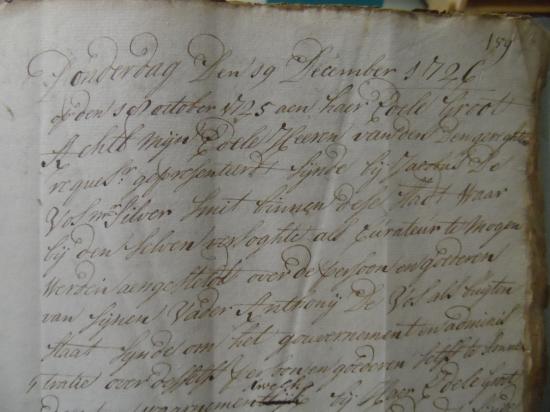 159
Donderdag Den 19 December 1726
op den 19 october 1725 aen haer Edele Groot
Achtb Mijn Edele Heeren van den Dengerechte
request gepresenteert sijnde bij Jacobus De
Vos mr Silver Smit binnen dese stadt Waer
bij den selven versoghte als Curateur te Mogen
Werden aengestelt over de persoon en goederen
van sijnen Vader Anthonij De Vos als buijten
staat sijnde om het gouvernement en adminis
tratie over desselfs persoon en goederen selfs te
welk bij Haer Edele Groot